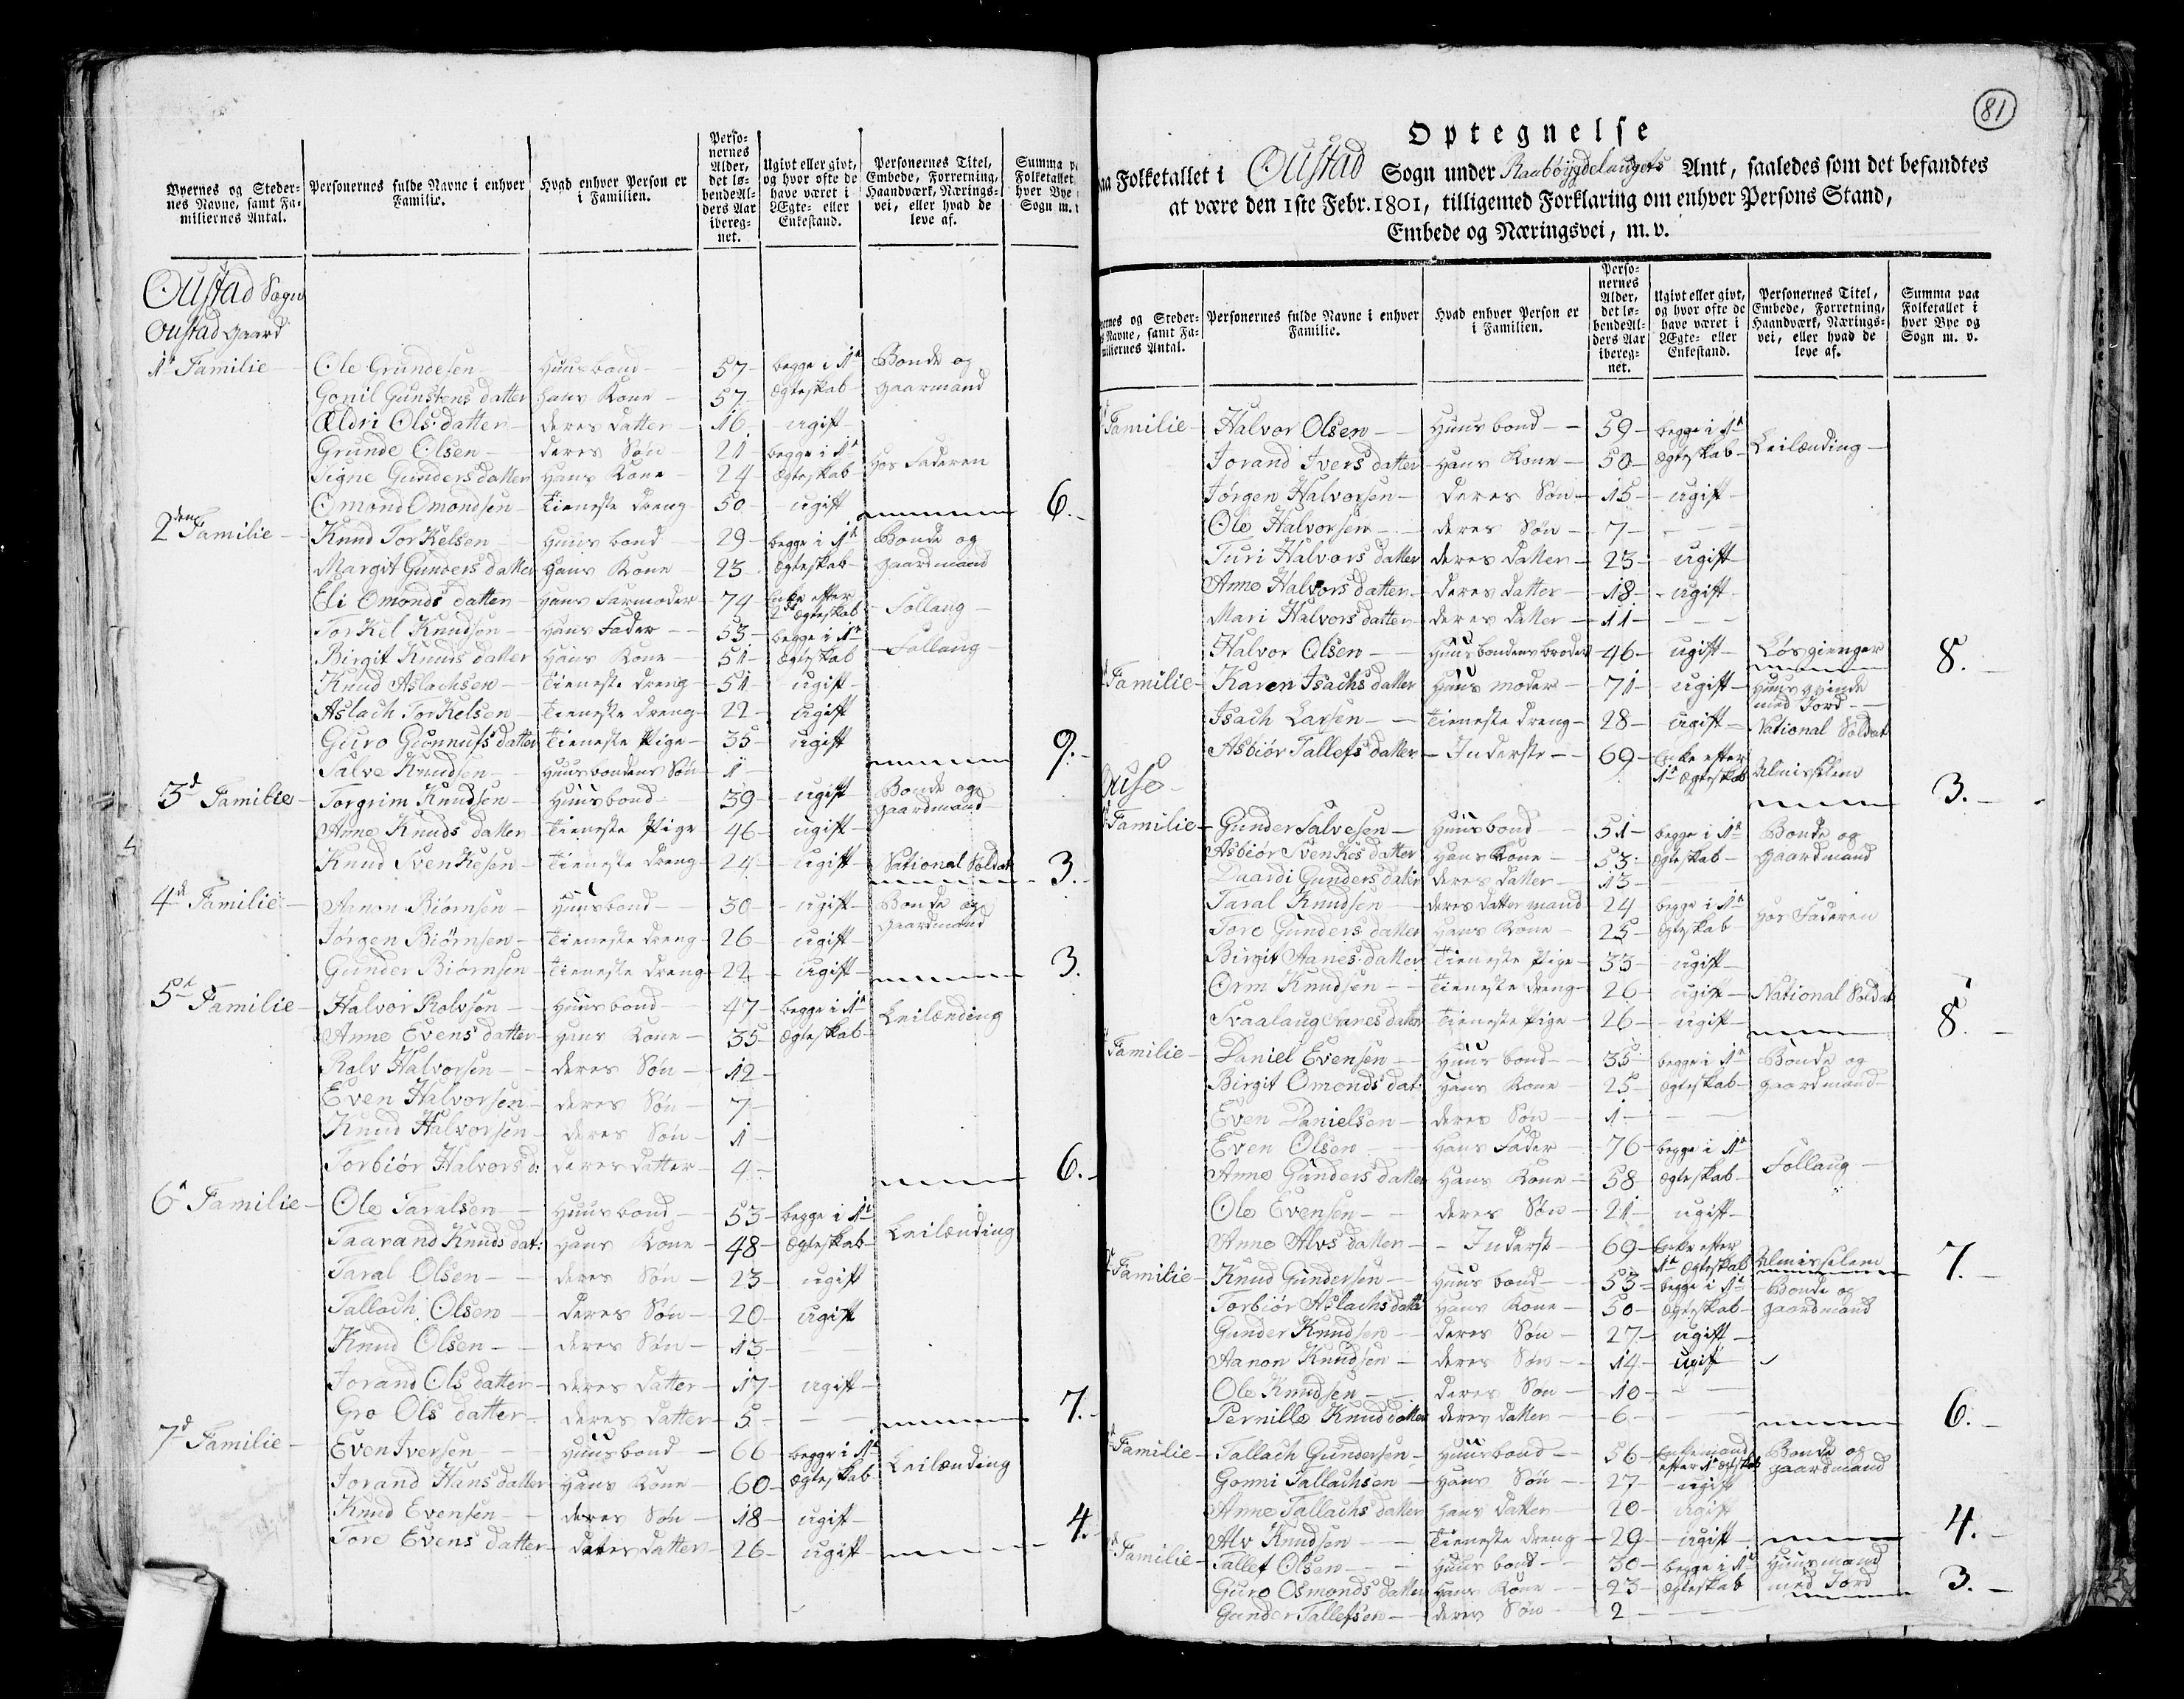 Byernes og Steder-
nes Navne, samt Fa-
miliernes Antal.
Personernes fulde Navne i enhver
Familie.
Hvad enhver Person er
i Familien.
Perso-
nernes
Alder,
det lø-
bende Al-
ders Aar
ibereg-
net.
Ugivt eller givt,
og hvor ofte de
have været i
Ægte- eller
Enkestand.
Personernes Titel,
Embede, Forretning,
Haandværk, Nærings-
vei, eller hvad de
leve af.
Summa
Folketallet
hver Bye
Sogn m.
Oustad Sogn
Oustad Gaard
1te Familie Ole Grundesen Huusbond 57 begge i 1te Bonde og
Gonil Gunstens datter Hans Kone 57 Ægteskab Gaarmand
Ældri Ols datter deres datter 16 ugift
Grunde Olsen deres Søn 21 begge i 1te Hos Faderen
Signe Gunders datter Hans Kone 24 Ægteskab
Omond Omondsen Tieneste dreng 50 ugift 6.
2den Familie Knud Torkelsen Huusbond 29 begge i 1te Bonde og
Margit Gunders datter Hans Kone 23 Ægteskab Gaardmand
Eli Omonds datter Hans Farmoder 74 Enke efter 2det Ægteskab Follaug
Torkel Knudsen Hans Fader 53 begge i 1te Follaug
Birgit Knuds datter Hans Kone 51 Ægteskab
Knud Aslachsen Tieneste dreng 51 ugift
Aslach Torkelsen Tieneste dreng 22 ugift
Guro Gunnufs datter Tieneste Pige 35 ugift 9.
Salve Knudsen Huusbondens Søn 1
3d Familie Torgrim Knudsen Huusbond 39 ugift Bonde og Gaardmand
Anne Knuds datter Tieneste Pige 46 ugift
Knud Svenkesen Tieneste dreng 24 ugift National Soldat 3.
4de Familie Aanon Biørnsen Huusbond 30 ugift Bonde og Gaardmand
Jørgen Biørnsen Tieneste dreng 26 ugift
Gunder Biørnsen Tieneste dreng 22 ugift 3.
5te Familie Halvor Rolvsen Huusbond 47 begge i 1te Leilænding
Anne Evens datter Hans Kone 35 Ægteskab
Rolv Halvorsen deres Søn 12
Even Halvorsen deres Søn 7
Knud Halvorsen deres Søn 1
Torbiør Halvors d: deres datter 4 6.
6te Familie Ole Taralsen Huusbond 53 begge i 1te Leilænding
Taarand Knuds dat: Hans Kone 48 Ægteskab
Taral Olsen deres Søn 23 ugift
Tallach Olsen deres Søn 20 ugift
Knud Olsen deres Søn 13
Jorand Ols datter deres datter 17 ugift
Gro Ols datter deres datter 5 7.
7d Familie Even Iversen Huusbond 66 begge i 1te Leilænding
Jorand Hans datter Hans Kone 60 Ægteskab
Knud Evensen deres Søn 18 ugift
Tore Evens datter deres datter 26 ugift 4.
81
Optegnelse
paa Folketallet i Oustad Sogn under Raabøygdelaugets Amt, saaledes som det befandtes
at være den 1ste Febr. 1801, tilligemed Forklaring om enhver Persons Stand,
Embede og Næringsvei, m. v.
ernes og Steder-
s Navne, samt Fa-
miliernes Antal.
Personernes fulde Navne i enhver
Familie.
Hvad enhver Person er
i Familien.
Perso-
nernes
Alder,
det lø-
bende Al-
ders Aar
ibereg-
net.
Ugivt eller givt,
og hvor ofte de
have været i
Ægte- eller
Enkestand.
Personernes Titel,
Embede, Forretning,
Haandværk, Nærings-
vei, eller hvad de
leve af.
Summa paa
Folketallet i
hver Bye og
Sogn m. v.
Familie Halvor Olsen Huusbond 59 begge i 1te Leilænding
Jorand Ivers datter Hans Kone 50 Ægteskab
Jørgen Halvorsen deres Søn 15 ugift
Ole Halvorsen deres Søn 7
Turi Halvors datter deres datter 23 ugift
Anne Halvors datter deres datter 18 ugift
Mari Halvors datter deres datter 11
Halvor Olsen Huusbondens broder 46 ugift Løsgienger 8.
Familie Karen Isachs datter Huusmoder 71 ugift Huusqvinde med Jord
Isach Larsen Tieneste dreng 28 ugift National Soldat
Asbiør Tallefs datter Inderste 69 Enke efter 1te Ægteskab Almisselem 3.
Ouse
Familie Gunder Salvesen Huusbond 51 begge i 1te Bonde og
Asbiør Svenkes datter Hans Kone 53 Ægteskab Gaardmand
Gunders datter deres datter 13
Taral Knudsen deres datter mand 24 begge i 1te Hos Faderen
Tore Gunders datter Hans Kone 25 Ægteskab
Birgit Aanes datter Tieneste Pige 33 ugift
Orm Knudsen Tieneste dreng 26 ugift National Soldat
Svaalaug Aanes datter Tieneste Pige 26 ugift 8.
Familie Daniel Evensen Huusbond 35 begge i 1te Bonde og
Birgit Omonds dat: Hans Kone 25 Ægteskab gaardmand
Even Danielsen deres Søn 1
Even Olsen Hans Fader 76 begge i 1te Follaug
Anne Gunders datter Hans Kone 58 Ægteskab
Ole Evensen deres Søn 21 ugift
Anne Alvs datter Inderst 69 Enke efter 1te Ægteskab Almisselem 7.
Familie Knud Gundersen Huusbond 53 begge i 1te Bonde og
Torbiør Aslachs datter Hans Kone 50 Ægteskab gaardmand
Gunder Knudsen deres Søn 27 ugift
Aanon Knudsen deres Søn 14 ugift
Ole Knudsen deres Søn 10
Pernille Knud datter deres datter 6 6.
Familie Tallach Gundersen Huusbond 56 Enkemand efter 1te Ægteskab Bonde og gaardmand
Gonni Tallachsen Hans Søn 27 ugift
Anne Tallachs datter Hans datter 20 ugift
Alv Knudsen Tieneste dreng 29 ugift 4.
Familie Tallef Olsen Huusbond 30 begge i 1te Huusmand
Guro Osmonds datter Hans Kone 23 Ægteskab med Jord 3.
Gunder Tallefsen deres Søn 2